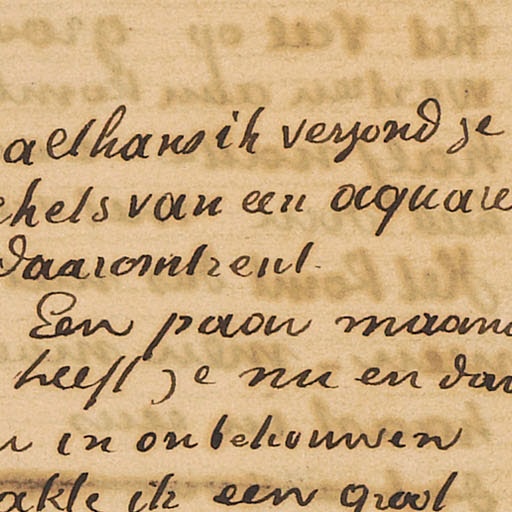 althans ik verzond je
schets van een aquare
daaromtrent.
Een paar maand
heeft je nu en dan
in onbehouwen
akte ik een groot